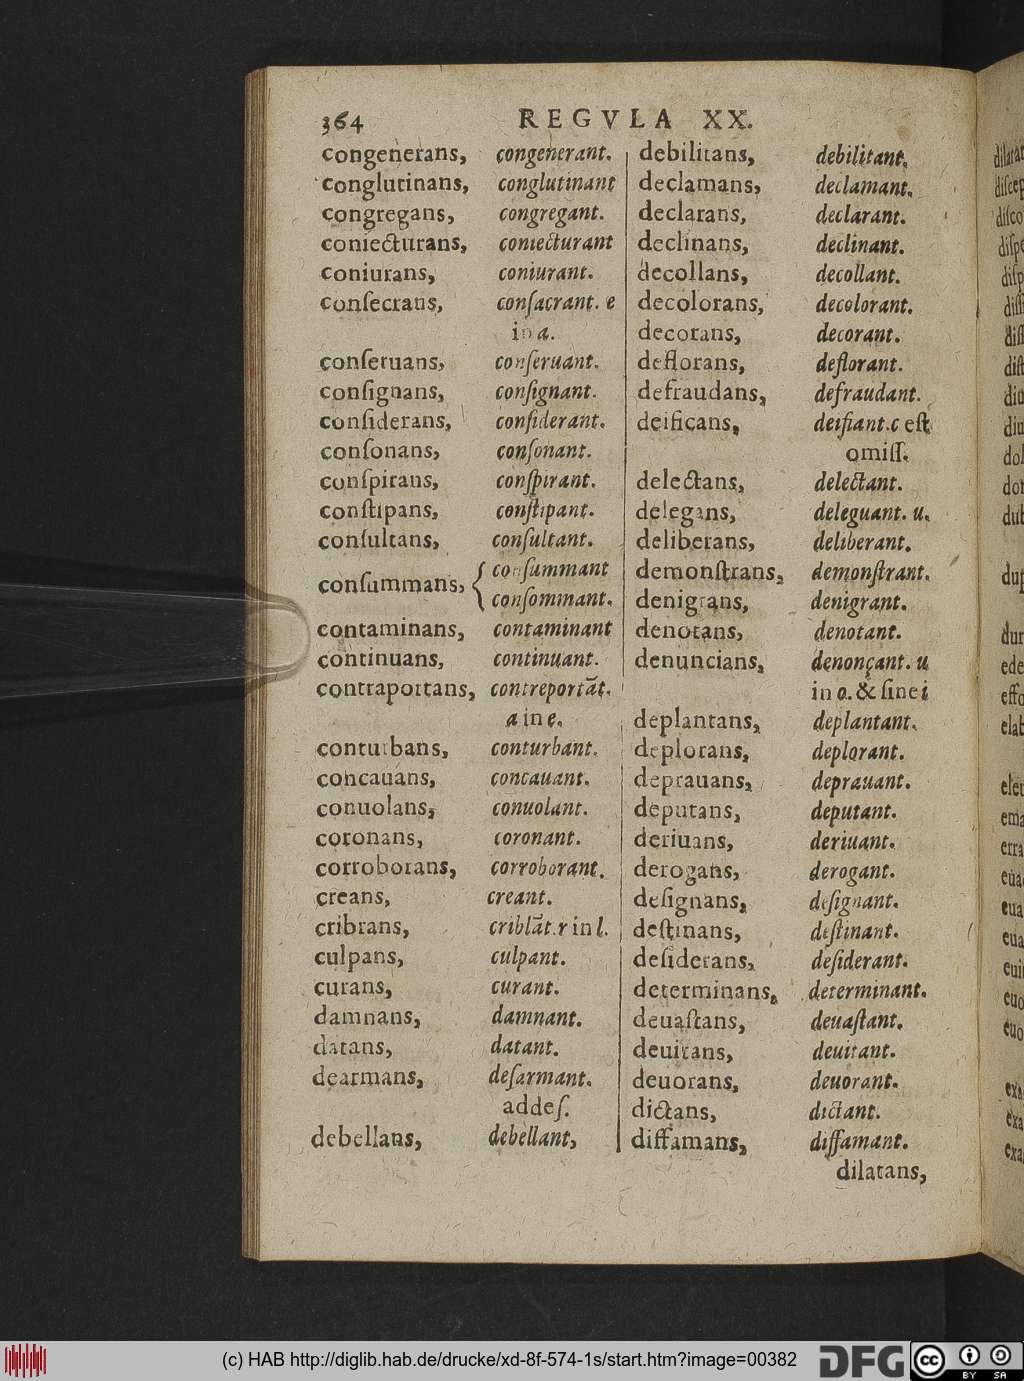 364 REGVLA XX.
congenerans, congenerant.
conglutinans, conglutinant
congregans, congregant.
coniecturans, coniecturant
coniurans, coniurant.
conſecrans, conſacrant. e
in a.
conſeruans, conſeruant.
conſignans, conſignant.
conſiderans, conſiderant.
conſonans, conſonant.
conſpirans, conſpirant.
conſtipans, conſtipant.
conſultans, conſultant.
conſummans, { conſummant
conſommant.
contaminans, contaminant
continuans, continuant.
contraportans, contreportãt.
a in e.
conturbans, conturbant.
concauans, concauant.
conuolans, conuolant.
coronans, coronant.
corroborans, corroborant.
creans, creant.
cribrans, criblãt. r in l.
culpans, culpant.
curans, curant.
damnans, damnant.
datans, datant.
dearmans, deſarmant.
addeſ.
debellans, debellant,
debilitans, debilitant.
declamans, declamant.
declarans, declarant.
declinans, declinant.
decollans, decollant.
decolorans, decolorant.
decorans, decorant.
deflorans, deflorant.
defraudans, defraudant.
deificans, deifiant. c eſt
omiſſ.
delectans, delectant.
delegans, deleguant. u.
deliberans, deliberant.
demonſtrans, demonſtrant.
denigrans, denigrant.
denotans, denotant.
denuncians, denonçant. u
in o. & ſine i
deplantans, deplantant.
deplorans, deplorant.
deprauans, deprauant.
deputans, deputant.
deriuans, deriuant.
derogans, derogant.
deſignans, deſignant.
deſtinans, deſtinant.
deſiderans, deſiderant.
determinans, determinant.
deuaſtans, deuaſtant.
deuitans, deuitant.
deuorans, deuorant.
dictans, dictant.
diffamans, diffamant.
dilatans,
(c) HAB http://diglib.hab.de/drucke/xd-8f-574-1s/start.htm?image=00382
DFG
cc BY SA